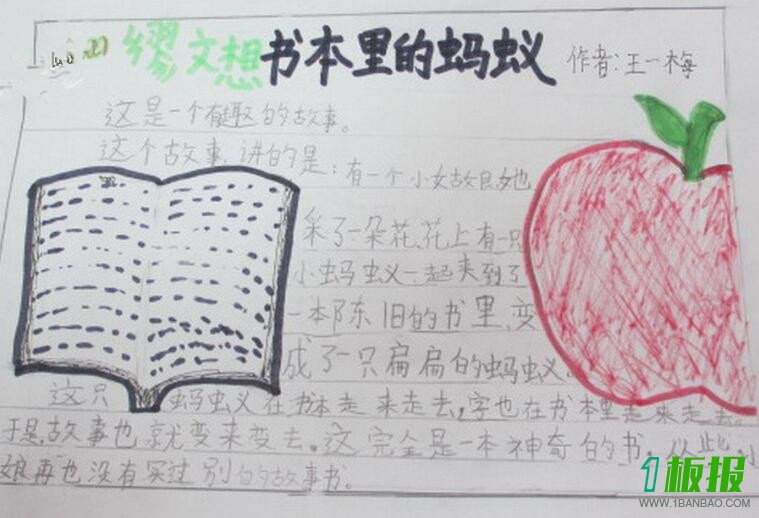 缪文想书本里的蚂蚁 作者:王一梅
这是一个有趣的故事。
这个故事,讲的是:有一个小女故良她
采了一朵花,花上有一只
小蚂蚁一起夹到了
一本陈旧的书里,变
成了一只扁扁的蚂蚁。
这只蚂蚁在书本走来走去,字也在书本里走来走去。
于是,故事也就变来变去。这完全是一本神奇的书。从此,小
娘再也没有买过别的的故事书。
1板报
WWW.1BANBAO.COM